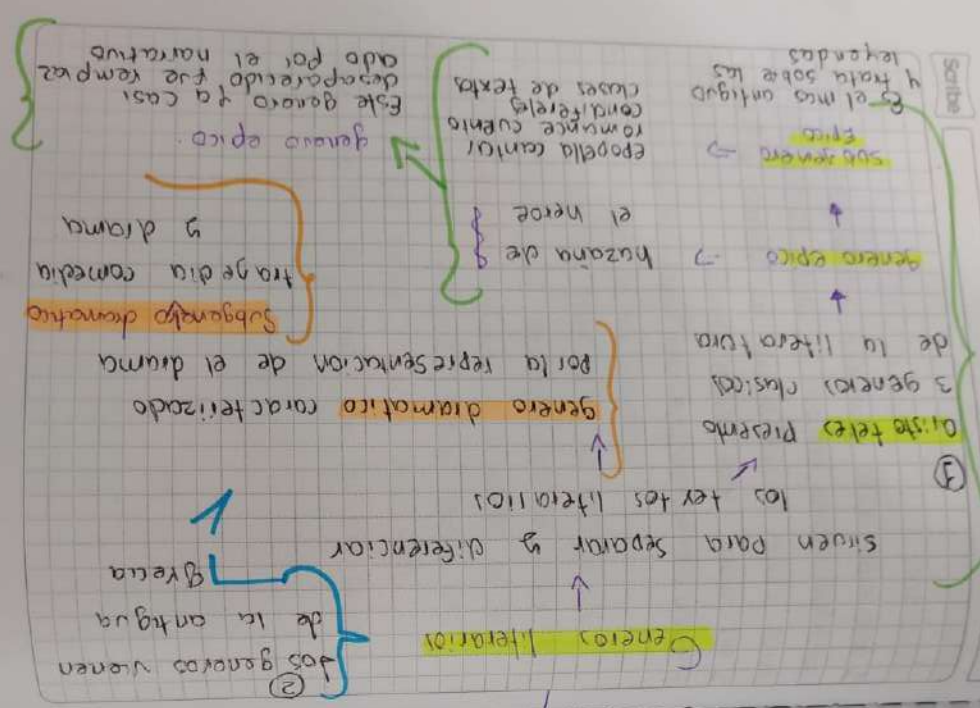 Generos literarios
sirven para separar y diferenciar
los textos literarios
②
los generos vienen
de la antigua
Grecia
①
Aristoteles Presento
3 generos clasicos
de la literatura
genero dramatico caracterizado
por la representacion de el drama
Subgenero dramatico
tragedia comedia
y drama
genero epico → hazaña de
el heroe
subgenero →
Epico
epopella cantar
romance cuento
condifereles
clases de textos
Es el mas antiguo
y trata sobre las
leyendas
genero epico.
Este genero ya casi
desaparecido fue remplaz
ado por el narrativo
Scribe